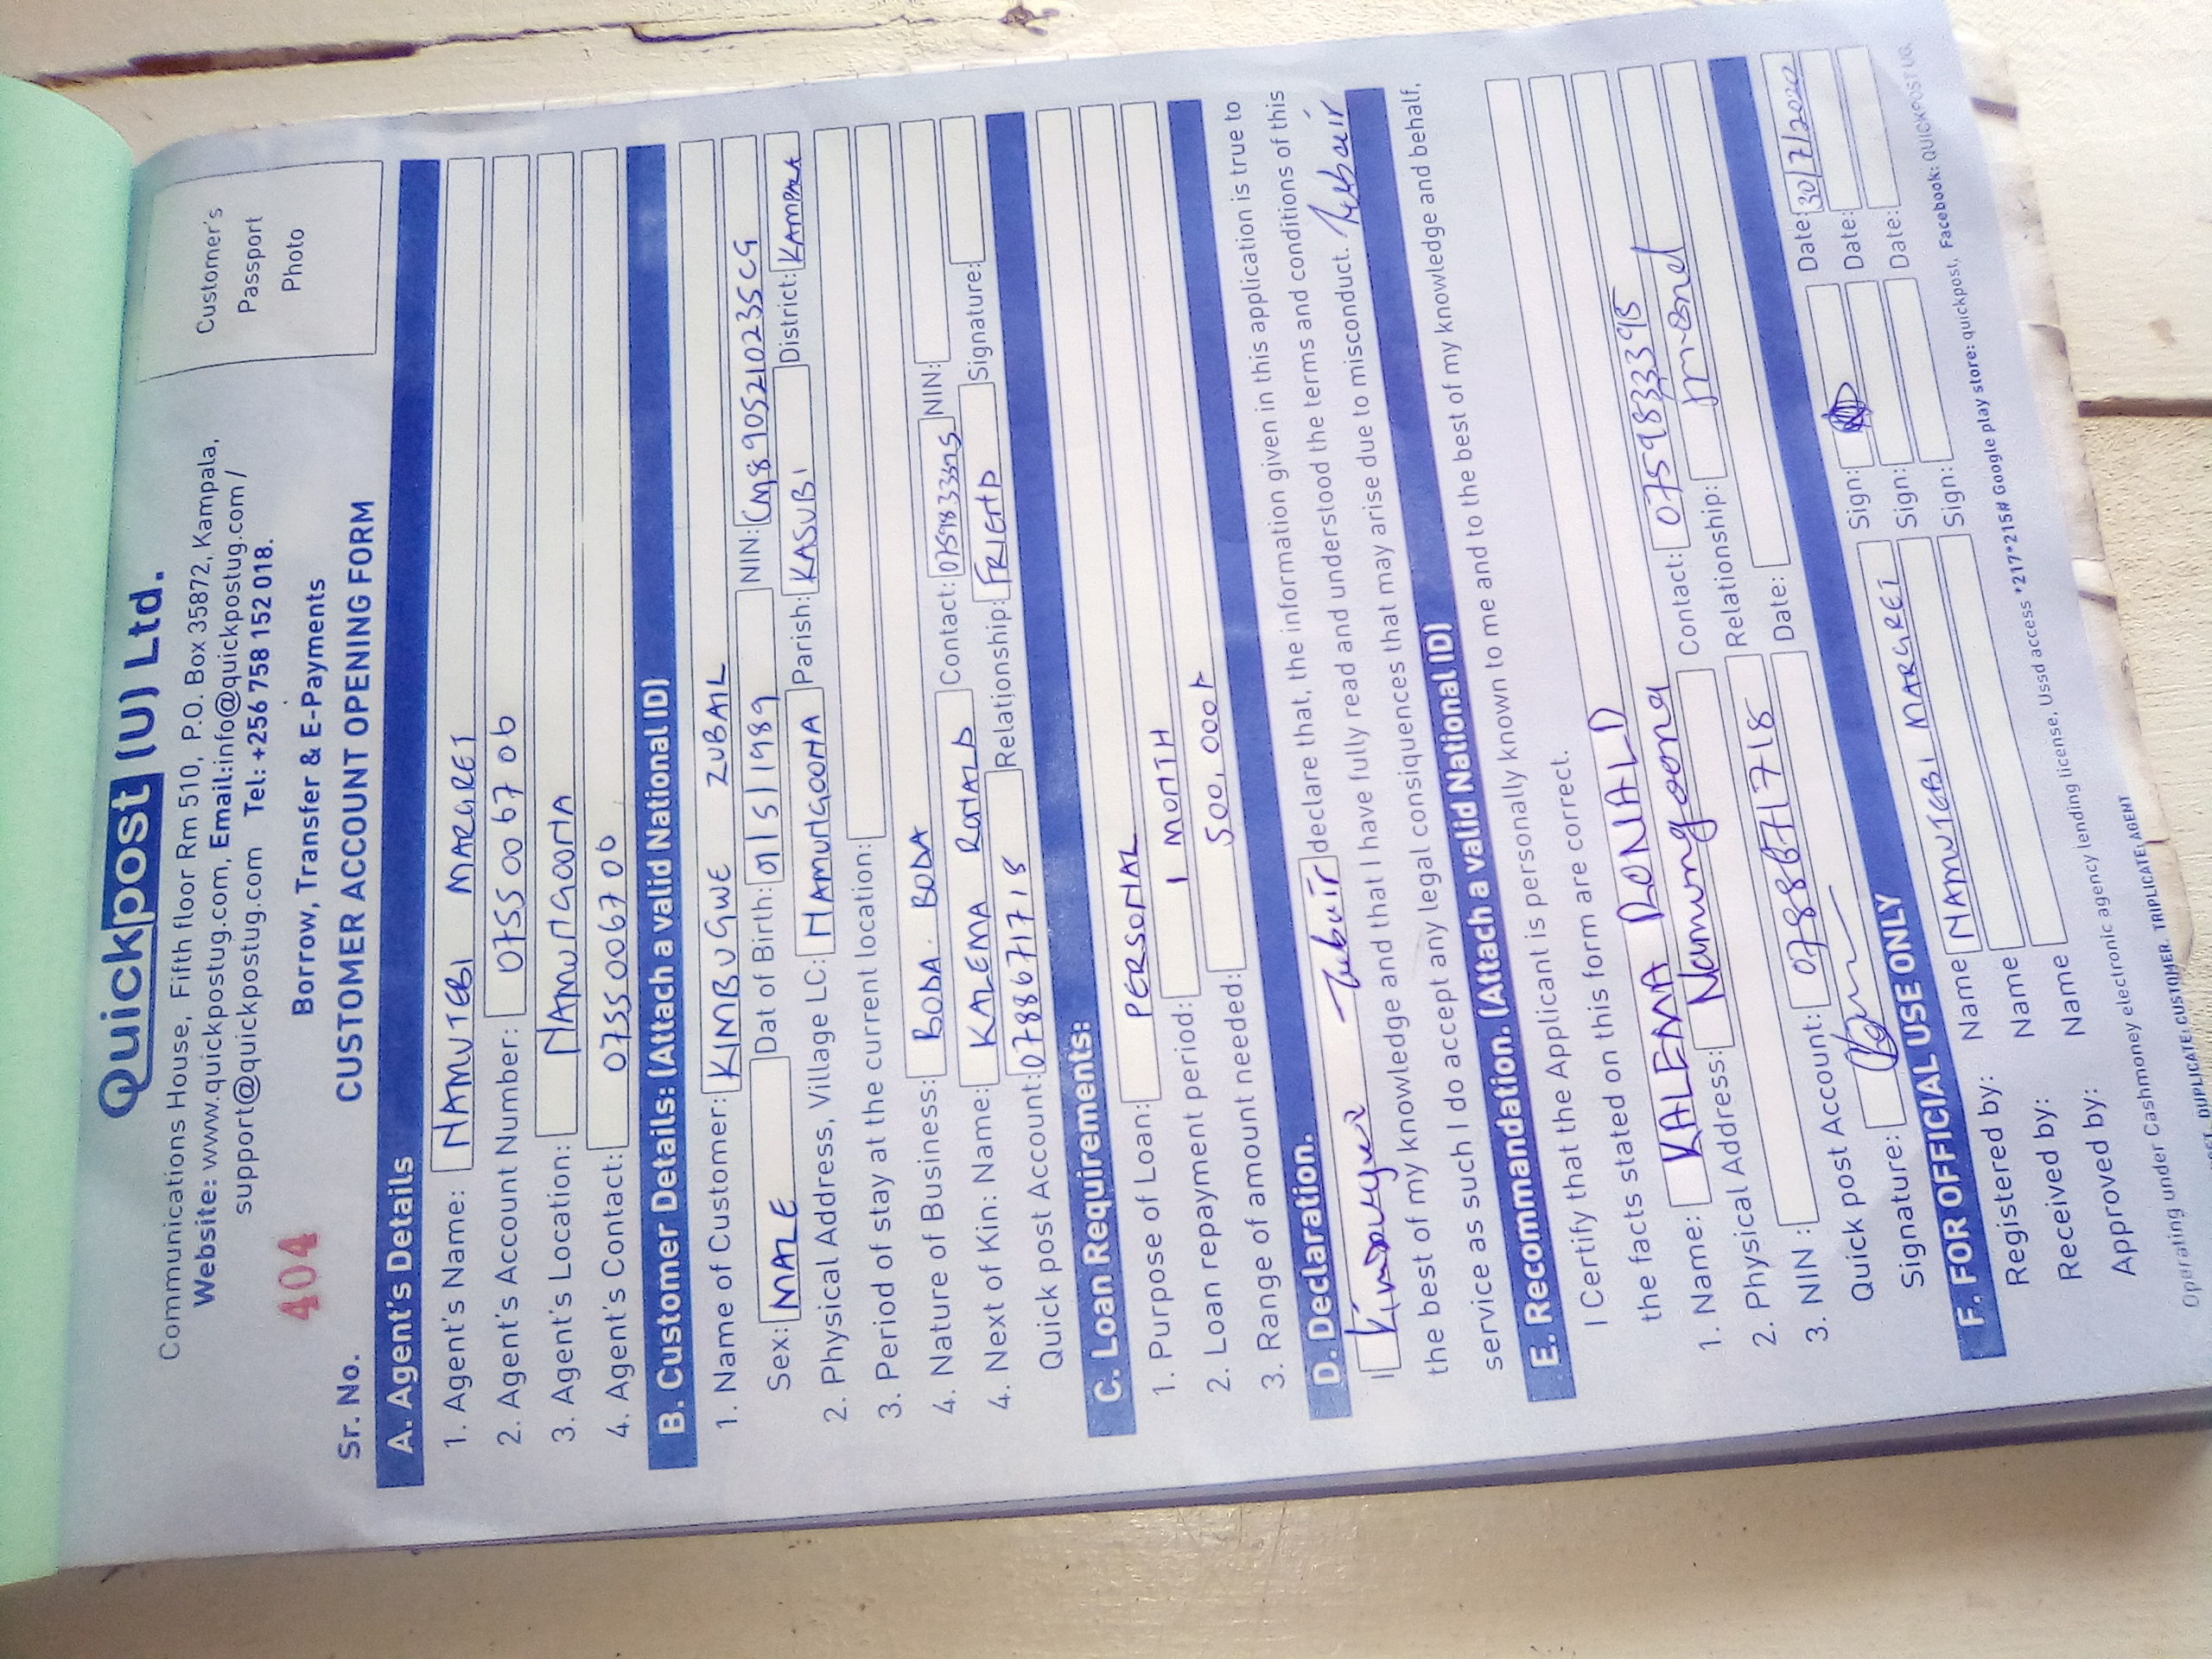 Quickpost (U) Ltd.
Communications House, Fifth floor Rm 510, P.O. Box 35872, Kampala,
Website: www.quickpostug.com, Email:info@quickpostug.com/
support@quickpostug.com Tel: +256 758 152 018.
Customer's
Passport
Photo
Borrow, Transfer & E-Payments
Sr. No. 404
CUSTOMER ACCOUNT OPENING FORM
A. Agent's Details
1. Agent's Name: NAMUTEBI MARGRET
2. Agent's Account Number: 0755006706
3. Agent's Location: NAMUNGOONA
4. Agent's Contact: 0755006706
B. Customer Details: (Attach a valid National ID)
1. Name of Customer: KIMBUGWE ZUBAIL
Sex: MALE Dat of Birth: 01/5/1989 NIN: CM8905210235CG
2. Physical Address, Village LC: NAMUNGOONA Parish: KASUBI District: KAMPALA
3. Period of stay at the current location:
4. Nature of Business: BODA. BODA
4. Next of Kin: Name: KALEMA RONALD Contact: 0759833395 NIN:
Quick post Account: 0788671718 Relationship: FRIEND Signature:
C. Loan Requirements:
1. Purpose of Loan: PERSONAL
2. Loan repayment period: 1 MONTH
3. Range of amount needed: 500,000
D. Declaration.
I Kimbugwe Zubair declare that, the information given in this application is true to
the best of my knowledge and that I have fully read and understood the terms and conditions of this
service as such I do accept any legal consiquences that may arise due to misconduct. Zubair
E. Recommandation. (Attach a valid National ID)
I Certify that the Applicant is personally known to me and to the best of my knowledge and behalf,
the facts stated on this form are correct.
1. Name: KALEMA RONALD
2. Physical Address: Namungoona Contact: 0759833395
3. NIN : Relationship: friend
Quick post Account: 0788671718 Date:
Signature:
F. FOR OFFICIAL USE ONLY
Registered by: Name NAMUTEBI MARGRET Sign: Date: 30/7/2020
Received by: Name Sign: Date:
Approved by: Name Sign: Date:
Operating under Cashmoney electronic agency lending license, Ussd access *217*215# Google play store: quickpost, Facebook: QUICKPOST UG,
DUPLICATE: CUSTOMER. TRIPLICATE: AGENT